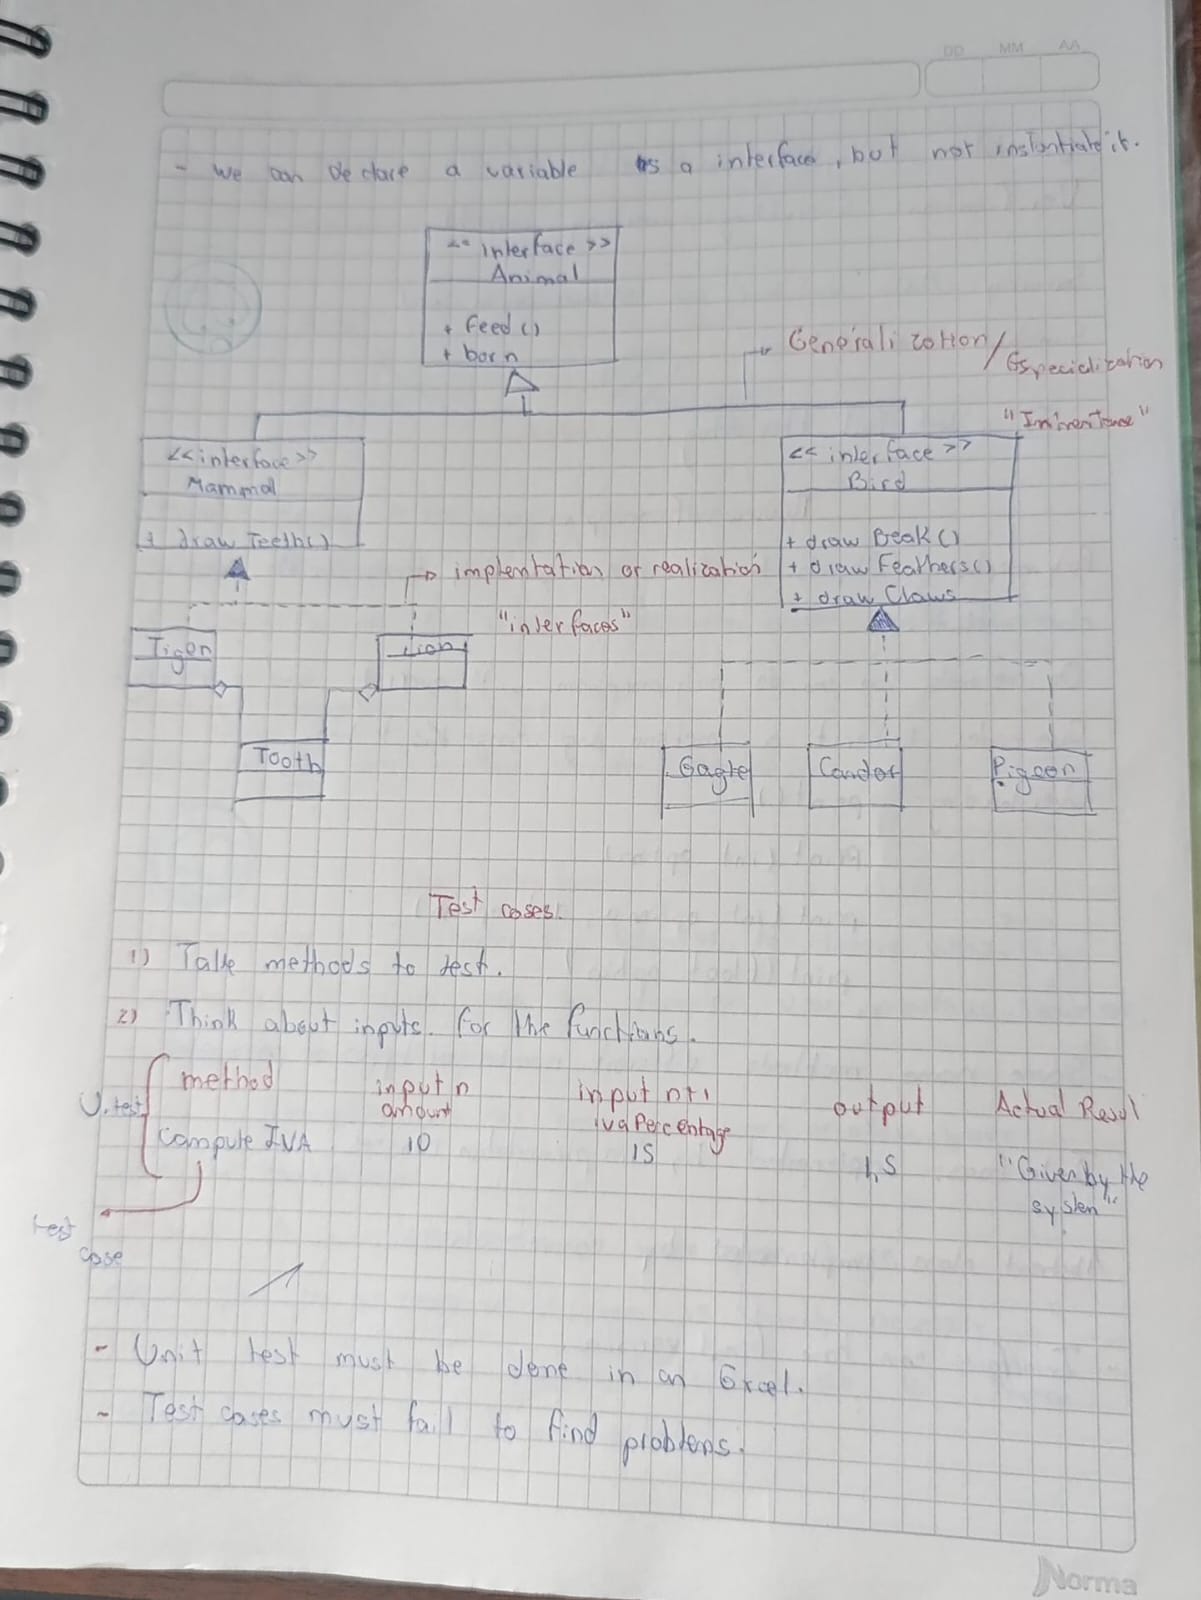 DD MM AA
- we can declare a variable as a interface, but not instantiate it.
<< interface >>
Animal
+ feed ()
+ born
Generalization /
Especialization
"Inheritance"
<<interface>>
Mammal
+ draw Teeth()
<< interface >>
Bird
+ draw Beak ()
+ draw Feathers()
+ draw Claws
implentation or realization
"interfaces"
Tiger
Lion
Tooth
Eagle
Condor
Pigeon
Test cases.
1) Take methods to test.
2) Think about inputs. for the functions.
method input n input n+1 output Actual Resul
amount ivaPercentage
U. test
Compute IVA 10 15 1,5 "Given by the
system"
test
case
- Unit test must be done in an Excel.
- Test cases must fail to find problems.
Norma